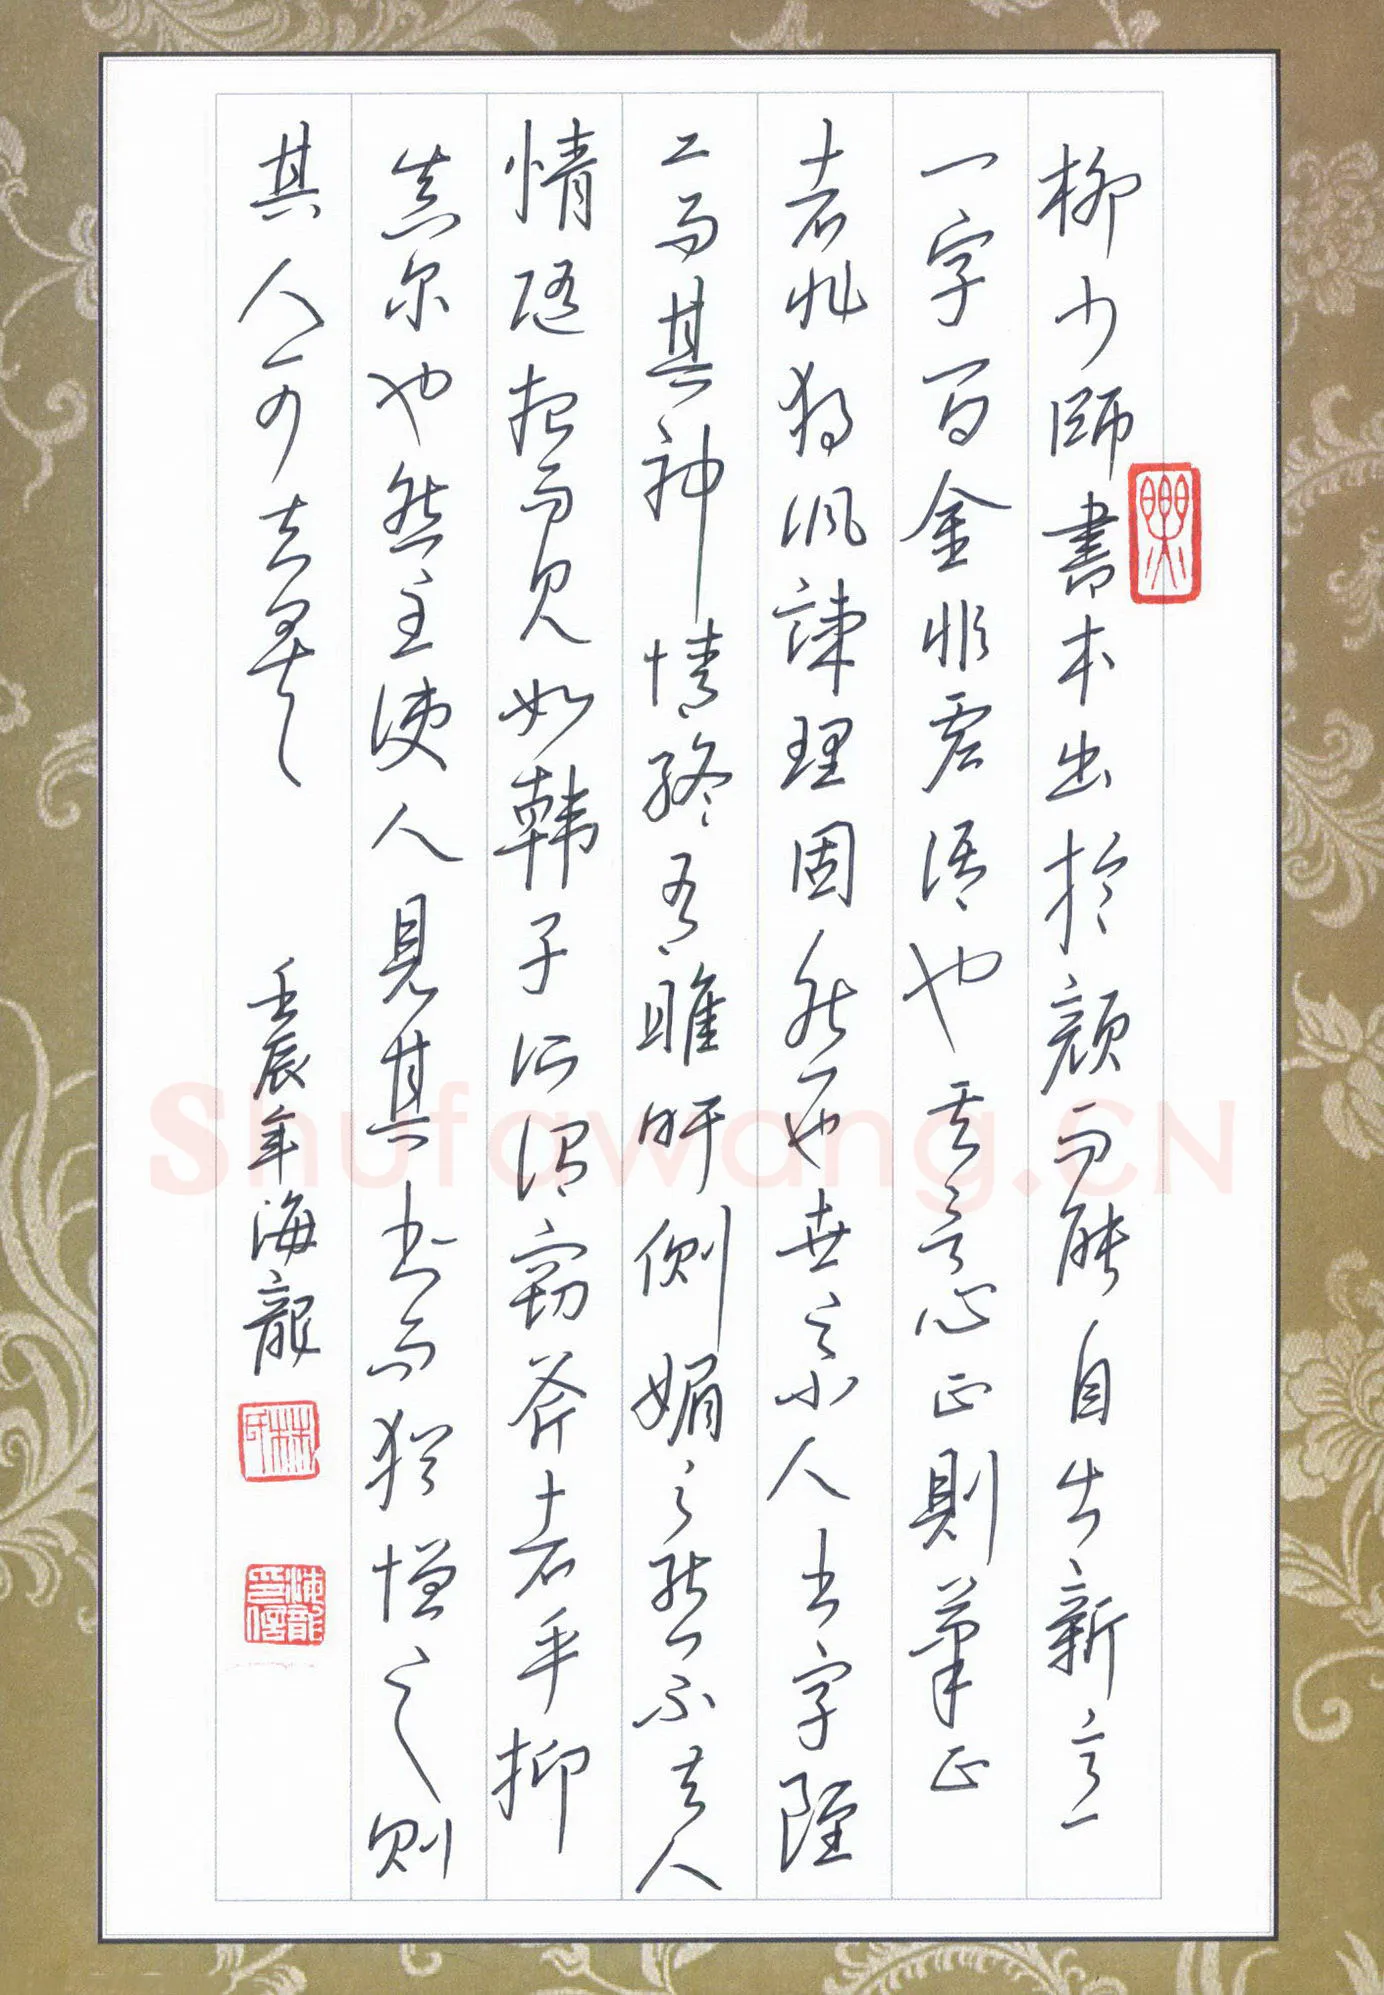 柳少師書本出於顏而能自出新意
一字百金非虚語也其言心正則筆正
者非獨諷諫理固然也世之小人书字雖
工而其神情終有睢盱側媚之態不知人
情隨想而见如韓子所謂竊斧者乎抑
真尔也然至使人見其书而猶憎之则
其人可知矣
壬辰年海龍
海龍印信
Shufawang.CN